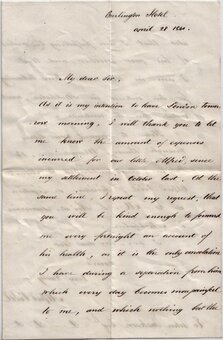 Burlington Hotel
April 28
My dear Sir,
As it is my intention to leave London tomor
row morning. I will thank you to let
me know the amount of expenses
incurred for our little Alfred since
my settlement in October last. At the
same time I repeat my request, that
you will be kind enough to forward
me every fortnight an account of
his health, as it is the only consolation
I have during a separation from him
which every day becomes more painful
to me, and which nothing but the